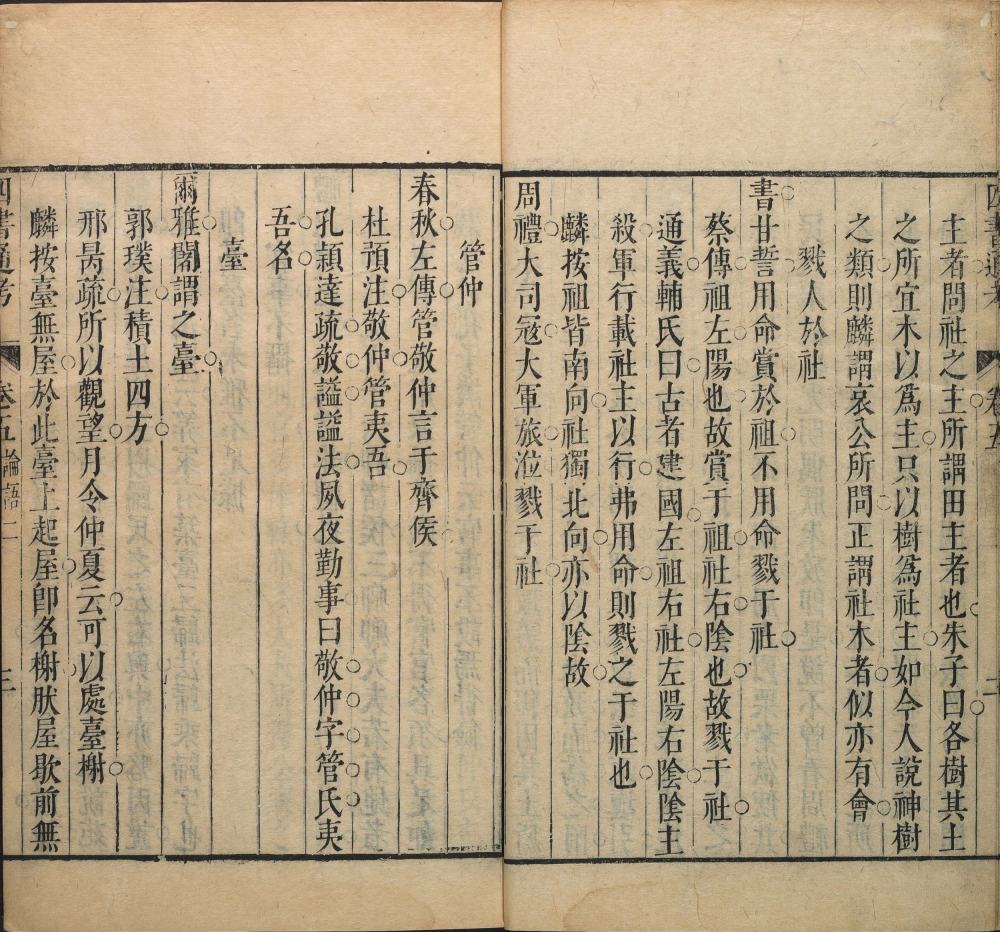 主者問社之主所謂田主者也朱子曰各樹其土
之所宜木以爲主只以樹爲社主如今人說神樹
之類則麟謂哀公所問正謂社木者似亦有會
戮人於社
書甘誓用命賞於祖不用命戮于社
蔡傳祖左陽也故賞于祖社右陰也故戮于社
通義輔氏曰古者建國左祖右社左陽右陰陰主
殺軍行載社主以行弗用命則戮之于社也
麟按祖皆南向社獨北向亦以陰故
周禮大司寇大軍旅涖戮于社
管仲
春秋左傳管敬仲言于齊侯
杜預注敬仲管夷吾
孔穎達疏敬謚謚法夙夜勤事曰敬仲字管氏夷
吾名
臺
爾雅闍謂之臺
郭璞注積土四方
邢昺疏所以觀望月令仲夏云可以處臺榭
麟按臺無屋於此臺上起屋卽名榭肰屋歇前無
四書通考 卷五論語二 三